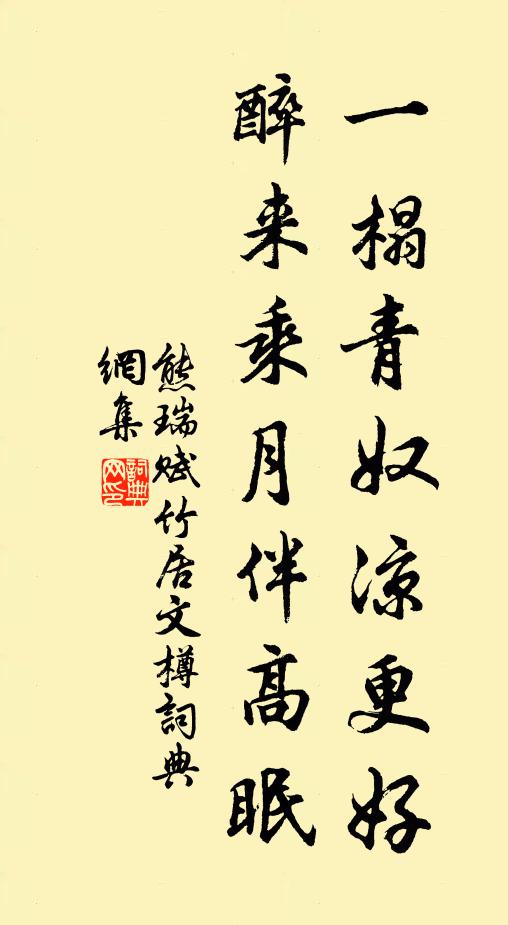 一榻青奴凉更好
醉来乘月伴高眠
熊瑞赋竹居文樽詞典
網集
詞典
网印